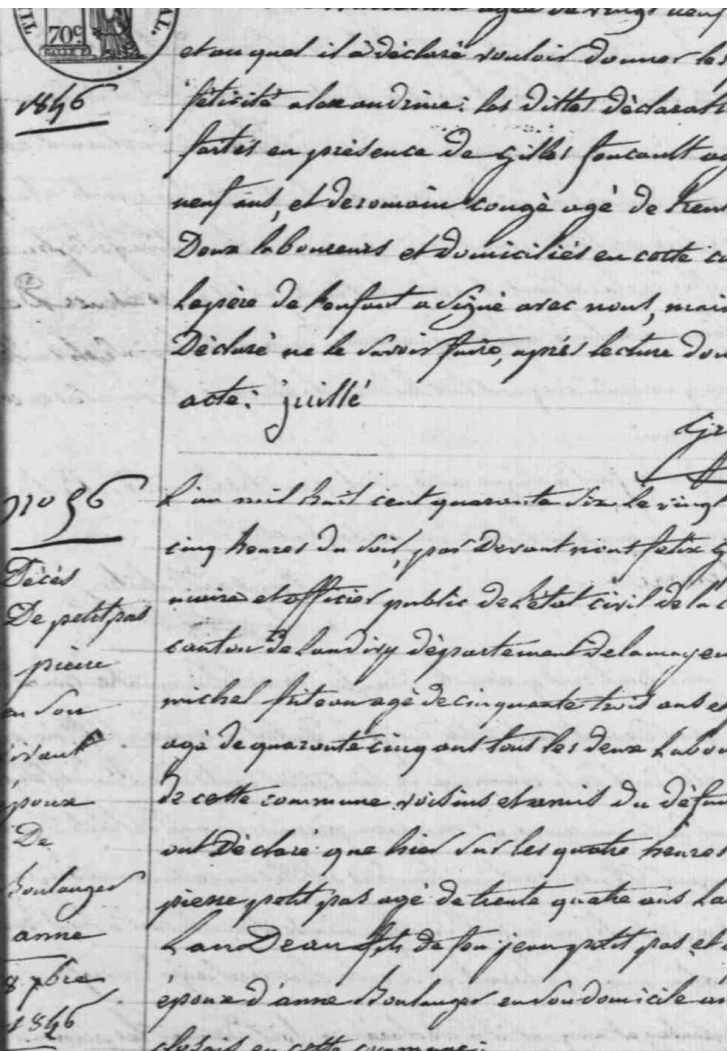 70c
AL.
agée de vingt neuf
1846
et au quel il a déclaré vouloir donner les
félicité alexandrine: les dittes déclarati
faites en présence de Gilles foucault ag
neuf ans, et de romain congé agé de tren
Deux laboureurs et domiciliés en cette co
Le père de l'enfant a signé avec nous, mais
Déclaré ne le savoir faire, après lecture don
acte: juillé
no 56
Décès
De petit pas
pierre
en son
vivant
époux
De
Boulanger
anne
8 7bre
1846
L'an mil huit cent quarante six, le vingt
cinq heures du soir, par Devant nous felix G
maire et officier public de l'état civil de la c
canton de Landivy département de la mayen
michel friteau agé de cinquante trois ans et
agé de quarante cinq ans tous les deux Labou
de cette commune voisins et amis du défun
ont Déclaré que hier sur les quatre heures
pierre petit pas agé de trente quatre ans La
LanDeau fils de feu jean petit pas et
epoux d'anne Boulanger en son domicile au
en cette commune: